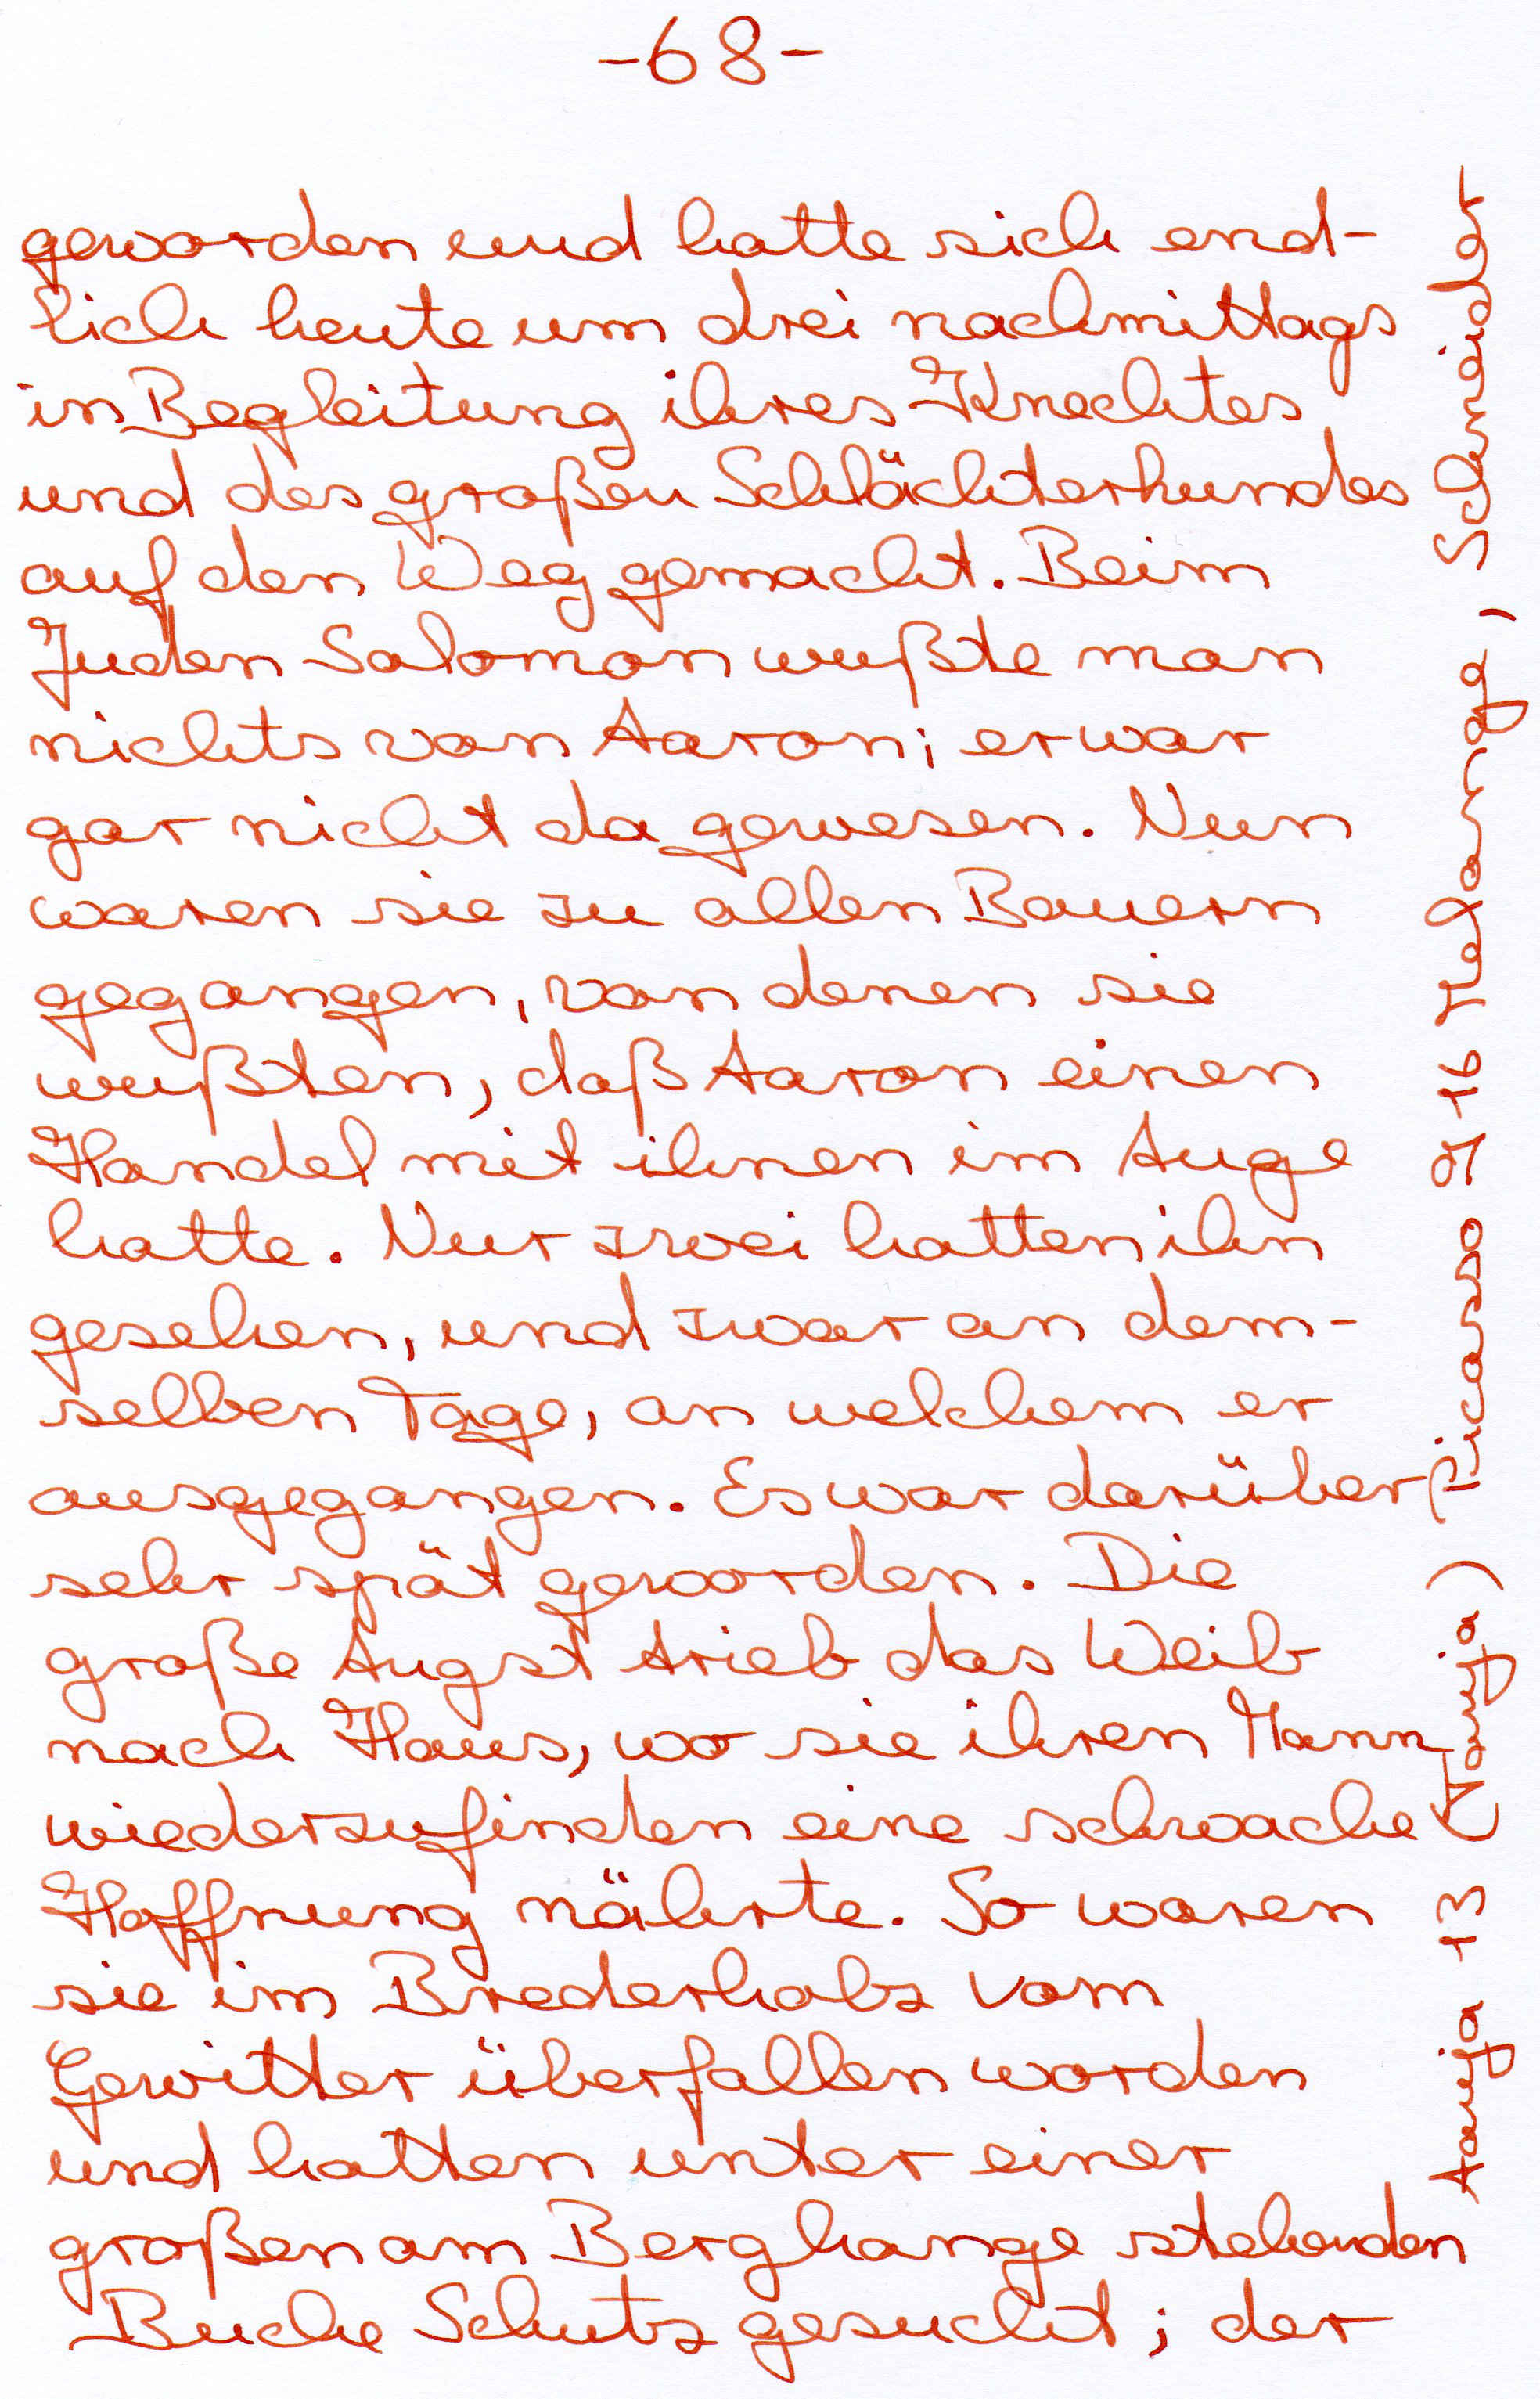 -68-
geworden und hatte sich end-
lich heute um drei nachmittags
in Begleitung ihres Knechtes
und des großen Schlächterhundes
auf den Weg gemacht. Beim
Juden Salomon wußte man
nichts von Aaron; er war
gar nicht da gewesen. Nun
waren sie zu allen Bauern
gegangen, von denen sie
wußten, daß Aaron einen
Handel mit ihnen im Auge
hatte. Nur zwei hatten ihn
gesehen, und zwar an dem-
selben Tage, an welchem er
ausgegangen. Es war darüber
sehr spät geworden. Die
große Angst trieb das Weib
nach Haus, wo sie ihren Mann
wiederzufinden eine schwache
Hoffnung nährte. So waren
sie im Brederholz vom
Gewitter überfallen worden
und hatten unter einer
großen am Berghange stehenden
Buche Schutz gesucht; der
Tanja 13 (Vanja) Picasso 16 Schneider